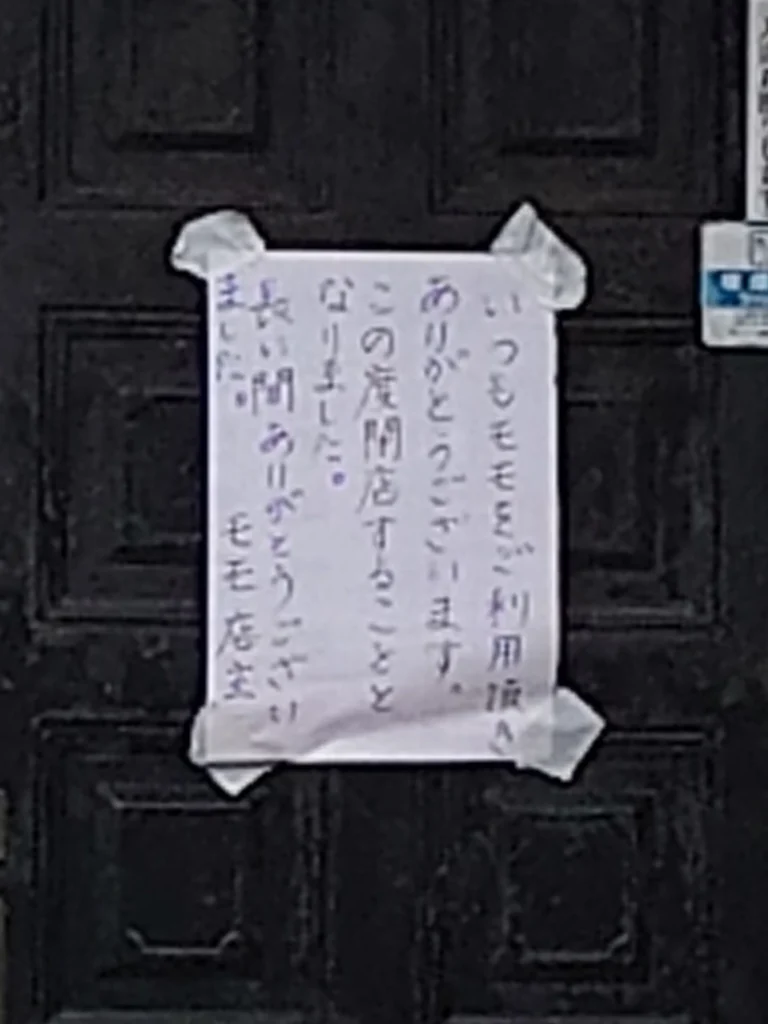 いつもモモをご利用頂き
ありがとうございます。
この度閉店することと
なりました。
長い間ありがとうござい
ました。
モモ店主